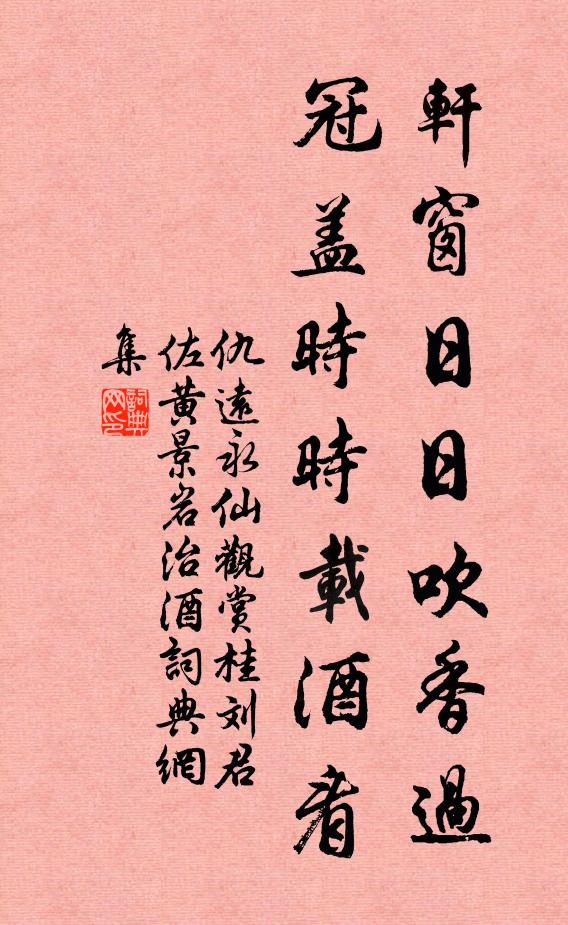 軒窗日日吹香過
冠盖時時載酒看
仇遠永仙觀賞桂刘君
佐黄景岩治酒詞典網
集
詞典
网印